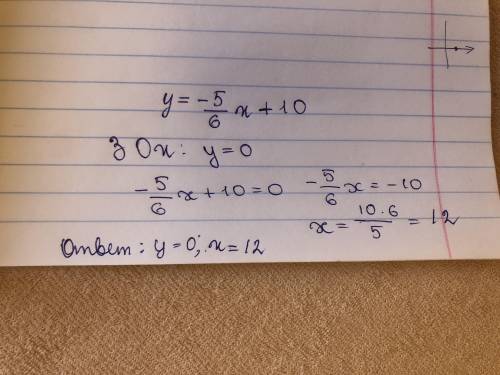 y = -5/6 x + 10
З Ox: y = 0
-5/6 x + 10 = 0
-5/6 x = -10
x = 10·6/5 = 12
Ответ: y = 0; x = 12